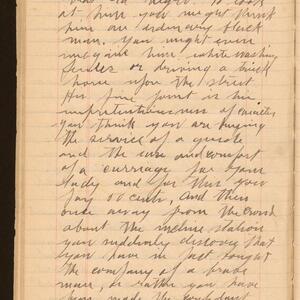 at him you might think
him an ordinary black
man. You might even
imagine him whitewashing
fences or driving a truck
horse upon the street.
His fine point is his
unpretentiousness of character
you think you are buying
the service of a guide
and the use and comfort
of a carriage for your
lady and for this you
pay 00 cents, and then
once away from the crowd
about the incline station
you suddenly discover that
you have in fact bought
the company of a brave
man, or rather you have
been made the